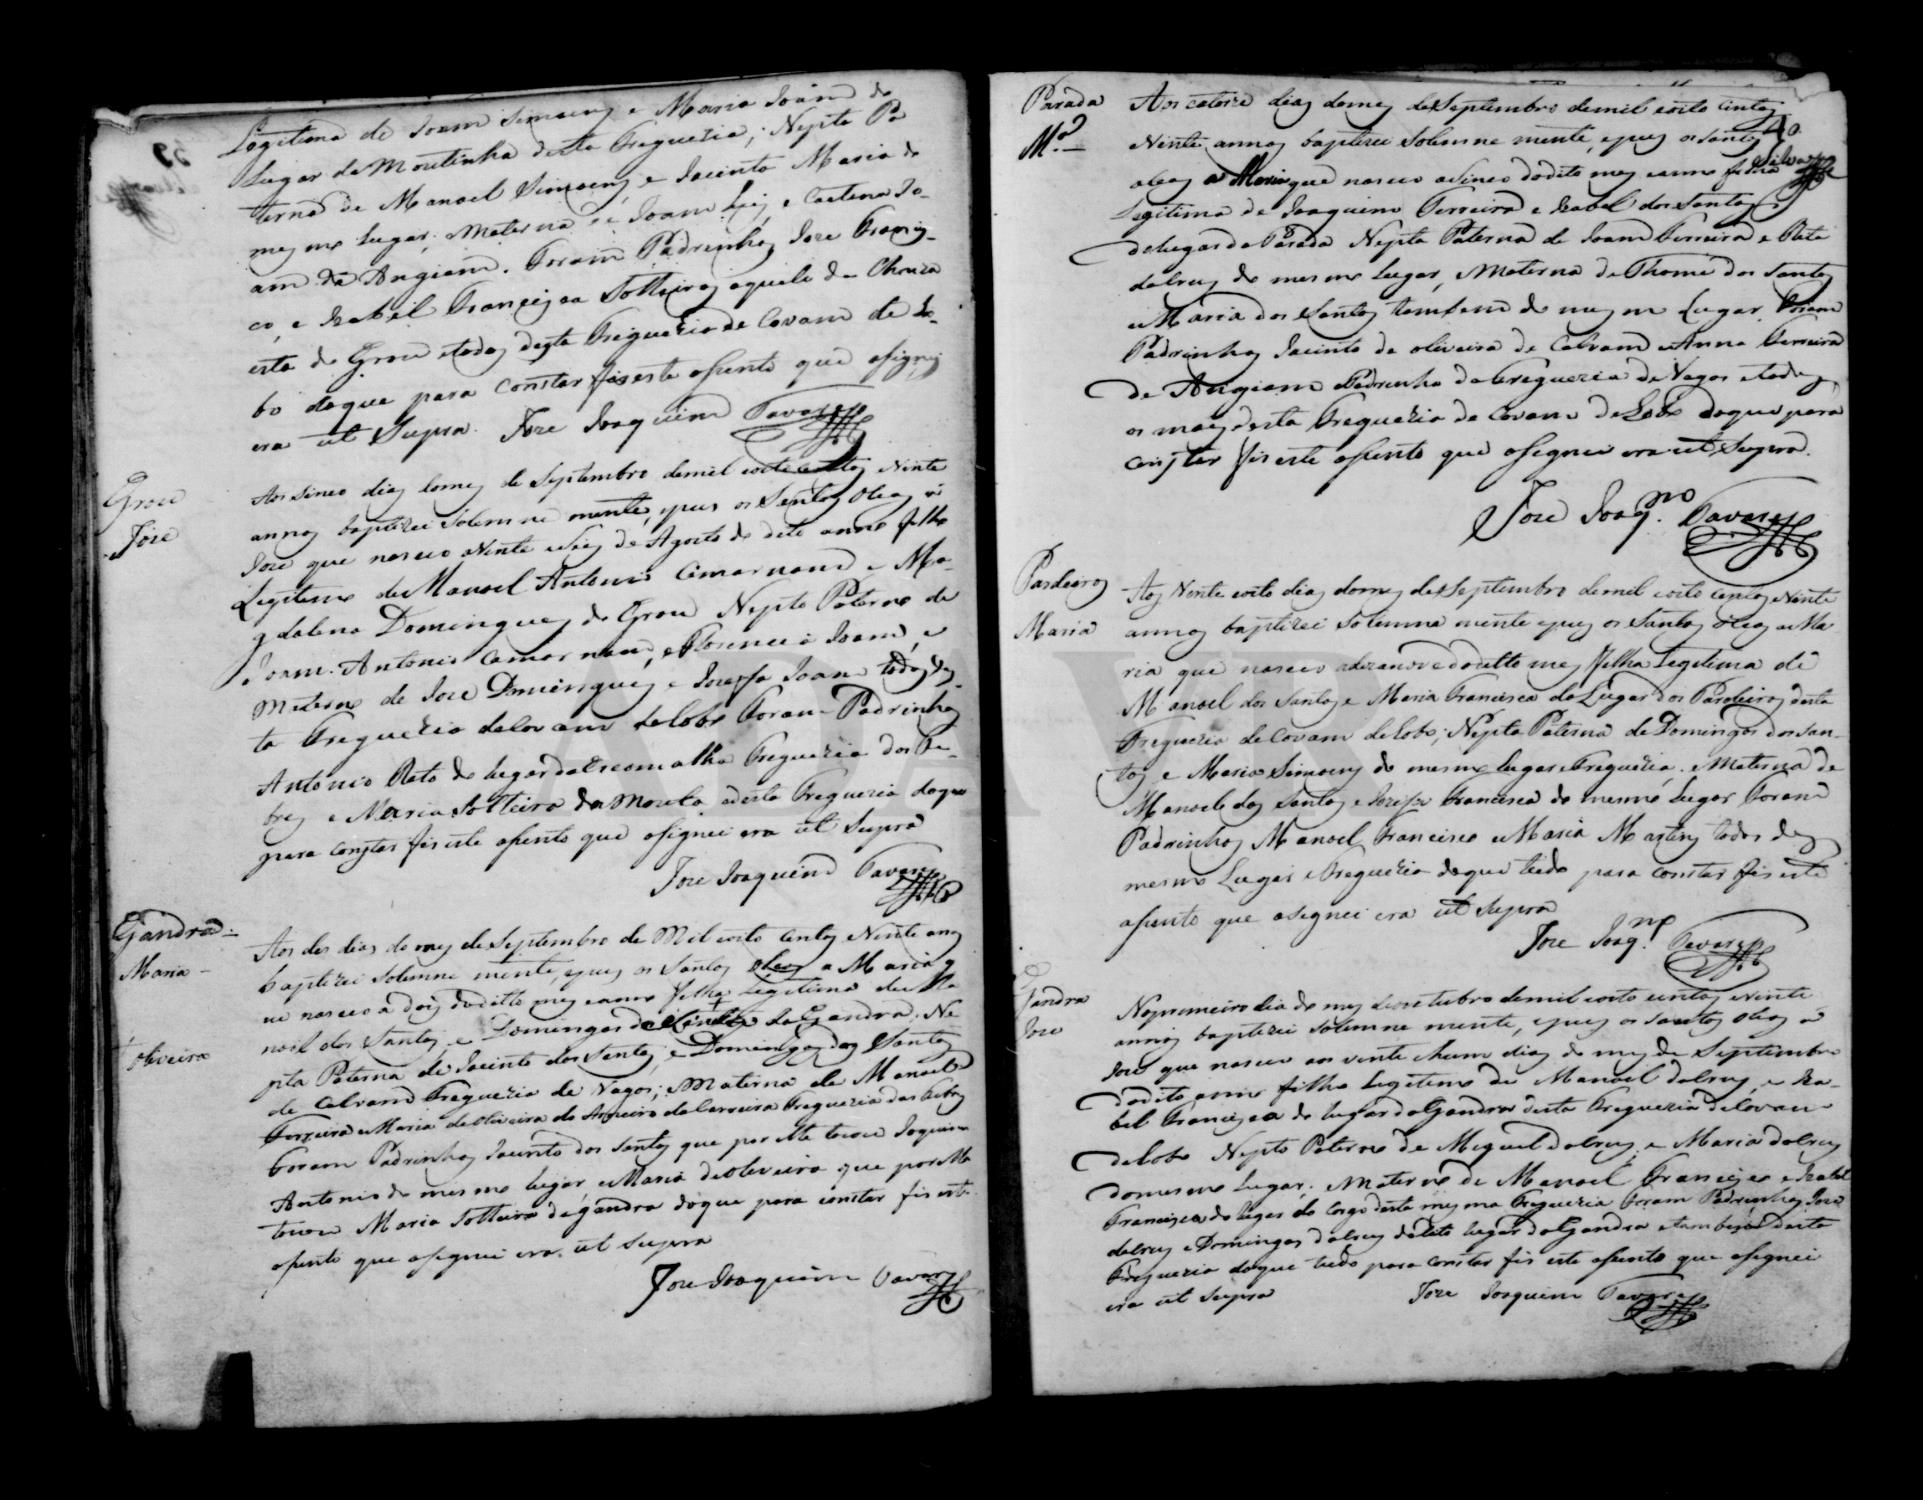 Legitima de Joam Simoens e Maria Joam do
Lugar da Moutinha desta Freguezia; Nepta Pa
terna de Manoel Simoens, e Jacinta Maria do
mesmo lugar; Materna de Joam Luis, e Caetana Jo-
am da Angiam. Foram Padrinhos Joze Francis-
co, e Izabel Francisca Solteiros aquele da Chouza
esta do Grou e todos desta Freguezia de Covam do Lo-
bo doque para constar fis este asento que asignei
era ut Supra. Joze Joaquim Tavares
Grou
Joze
Aos Sinco dias do mes de Septembro de mil oito centos Ninte
annos baptizei Solemne mente, e pus os Santos Oleos a
Joze que nasceo a Ninte e seis de Agosto do dito anno filho
Legitimo de Manoel Antonio Camarnam e Ma-
gdalena Domingues do Grou Nepto Paterno de
Joam Antonio Camarnam, e Florencia Joam, e
Materno de Joze Domingues e Josefa Joam todos des-
ta Freguezia de Covam do Lobo Foram Padrinhos
Antonio Rato do lugar da Freguezia dos Fe-
bres e Maria Solteira da Mouta desta Freguezia doque
para constar fis este asento que asignei era ut Supra
Joze Joaquim Tavares
Gandra
Maria
Oliveira
Aos des dias do mes de Septembro de Mil oito centos e Ninte anos
baptizei Solemne mente, e pus os Santos Oleos a Maria q
ue nasceo a dois do ditto mes e anno filha Legitima de Ma
noel dos Santos e Domingas da Gandra. Ne
pta Paterna de Jacinto dos Santos, e Domingas dos Santos
de Calvam Freguezia de Vagos; e Materna de Manoel
Ferreira e Maria de Oliveira do Areeiro da Carreira Freguezia das Febres
Foram Padrinhos Jacinto dos Santos que por elle tocou Joaquim
Antonio do mesmo lugar e Maria de Oliveira que por ella
tocou Maria Solteira da Gandra doque para constar fis este
asento que asignei era ut supra
Joze Joaquim Tavares
Parada
M.ª
Aos catorze dias do mes de Septembro de mil oito centos
Ninte annos baptizei Solemne mente, e pus os santos
oleos a Maria que nasceo a Sinco do dito mes e anno filha
Legitima de Joaquim Ferreira e Izabel dos Santos
do lugar da Parada Nepta Paterna de Joam Ferreira e Rita
da Crus do mesmo lugar, e Materna de Thomé dos Santos
e Maria dos Santos tambem do mesmo Lugar. Foram
Padrinhos Jacinto de oliveira de Calvam e Anna Ferreira
de Angiam e Padrinho da Freguezia de Vagos e todos
os mais desta Freguezia de Covam do Lobo doque para
constar fis este asento que asignei era ut Supra.
Joze Joaq.mo Tavares
Pardeiros
Maria
Aos Ninte e oito dias do mes de Septembro de mil oito centos e Ninte
annos baptizei Solemne mente e pus os Santos oleos a Ma
ria que nasceo a dezanove do ditto mes filha Legitima de
Manoel dos Santos e Maria Francisca do Lugar dos Pardeiros desta
Freguezia de Covam do Lobo; Nepta Paterna de Domingos dos San-
tos, e Maria Simoens do mesmo lugar e Freguezia, e Materna de
Manoel dos Santos e Josefa Francisca do mesmo lugar Foram
Padrinhos Manoel Francisco e Maria Martins todos do
mesmo Lugar e Freguezia doque tudo para constar fis este
asento que asignei era ut supra
Joze Joaq.m Tavares
Gandra
Joze
No primeiro dia do mes de outubro de mil oito centos e ninte
annos baptizei solemne mente, e pus os santos oleos a
Joze que nasceo aos vinte e hum dias do mes de Septembro
do dito anno filho Legitimo de Manoel da Crus e Iza-
bel Francisca do lugar da Gandra desta Freguezia de Covam
do Lobo Nepto Paterno de Miguel da Crus e Maria da Crus
do mesmo Lugar; e Materno de Manoel Francisco e Izabel
Francisca do lugar do Corgo desta mesma Freguezia Foram Padrinhos Joze
da Crus e Domingas da Crus do dito lugar da Gandra e tambem desta
Freguezia doque tudo para constar fis este asento que asignei
era ut Supra Joze Joaquim Tavares